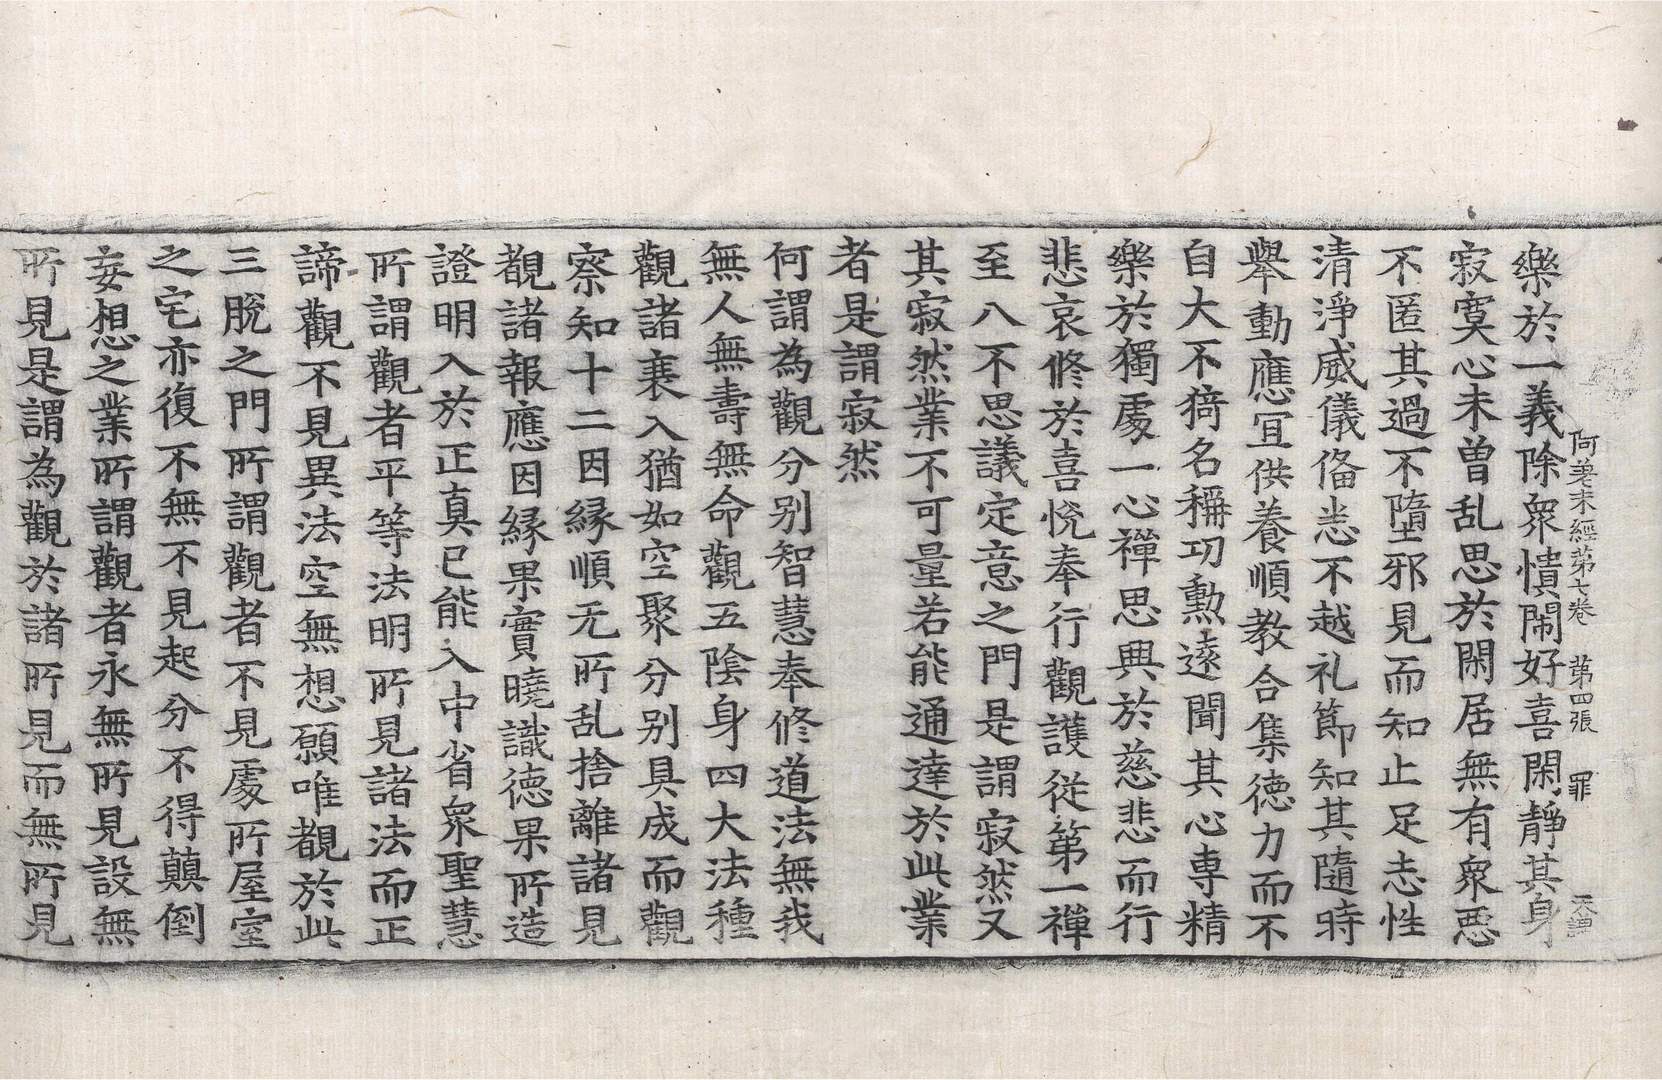 阿差末經第七卷 第四張 罪
樂於一義除衆憒鬧好喜閑靜其身
寂寞心未曽乱思於閑居無有衆惡
不匿其過不墮邪見而知止足志性
清淨威儀俻悉不越礼節知其隨時
舉動應冝供養順教合集徳力而不
自大不猗名稱功勲遠聞其心専精
樂於獨處一心禪思興於慈悲而行
悲哀修於喜悅奉行觀護從第一禪
至八不思議定意之門是謂寂然又
其寂然業不可量若能通達於此業
者是謂寂然
何謂為觀分別智慧奉修道法無我
無人無壽無命觀五陰身四大法種
觀諸衰入猶如空聚分別具成而觀
察知十二因縁順无所乱捨離諸見
覩諸報應因縁果實曉識徳果所造
證明入於正真已能入中省衆聖慧
所謂觀者平等法明所見諸法而正
諦觀不見異法空無想願唯覩於此
三脫之門所謂觀者不見處所屋室
之宅亦復不無不見起分不得顛倒
妄想之業所謂觀者永無所見設無
所見是謂為觀於諸所見而無所見